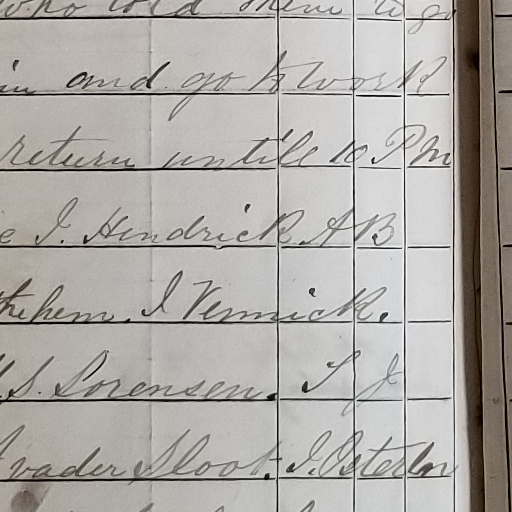 who told them to go
in and go to work
return untill 10 Pm
e J. Hendrick A B
thehem. J Vennick.
S. Sorensen. T J
vader Sloot. J. Osterln